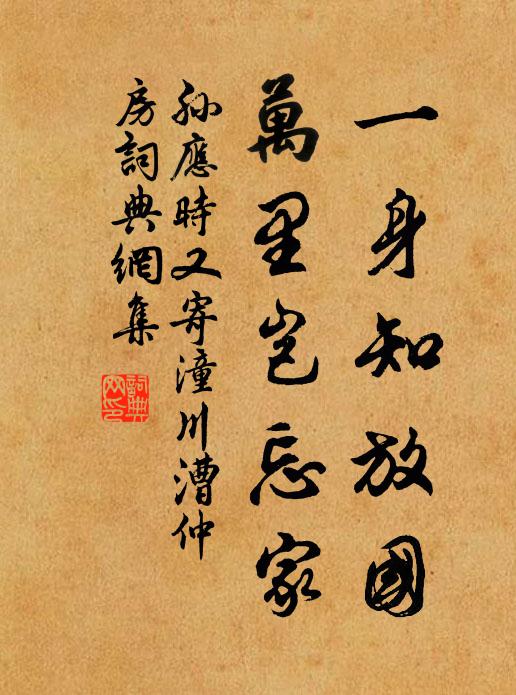 一身知放國
萬里岂忘家
孫應時又寄潼川漕仲
房詞典網集
詞典網印